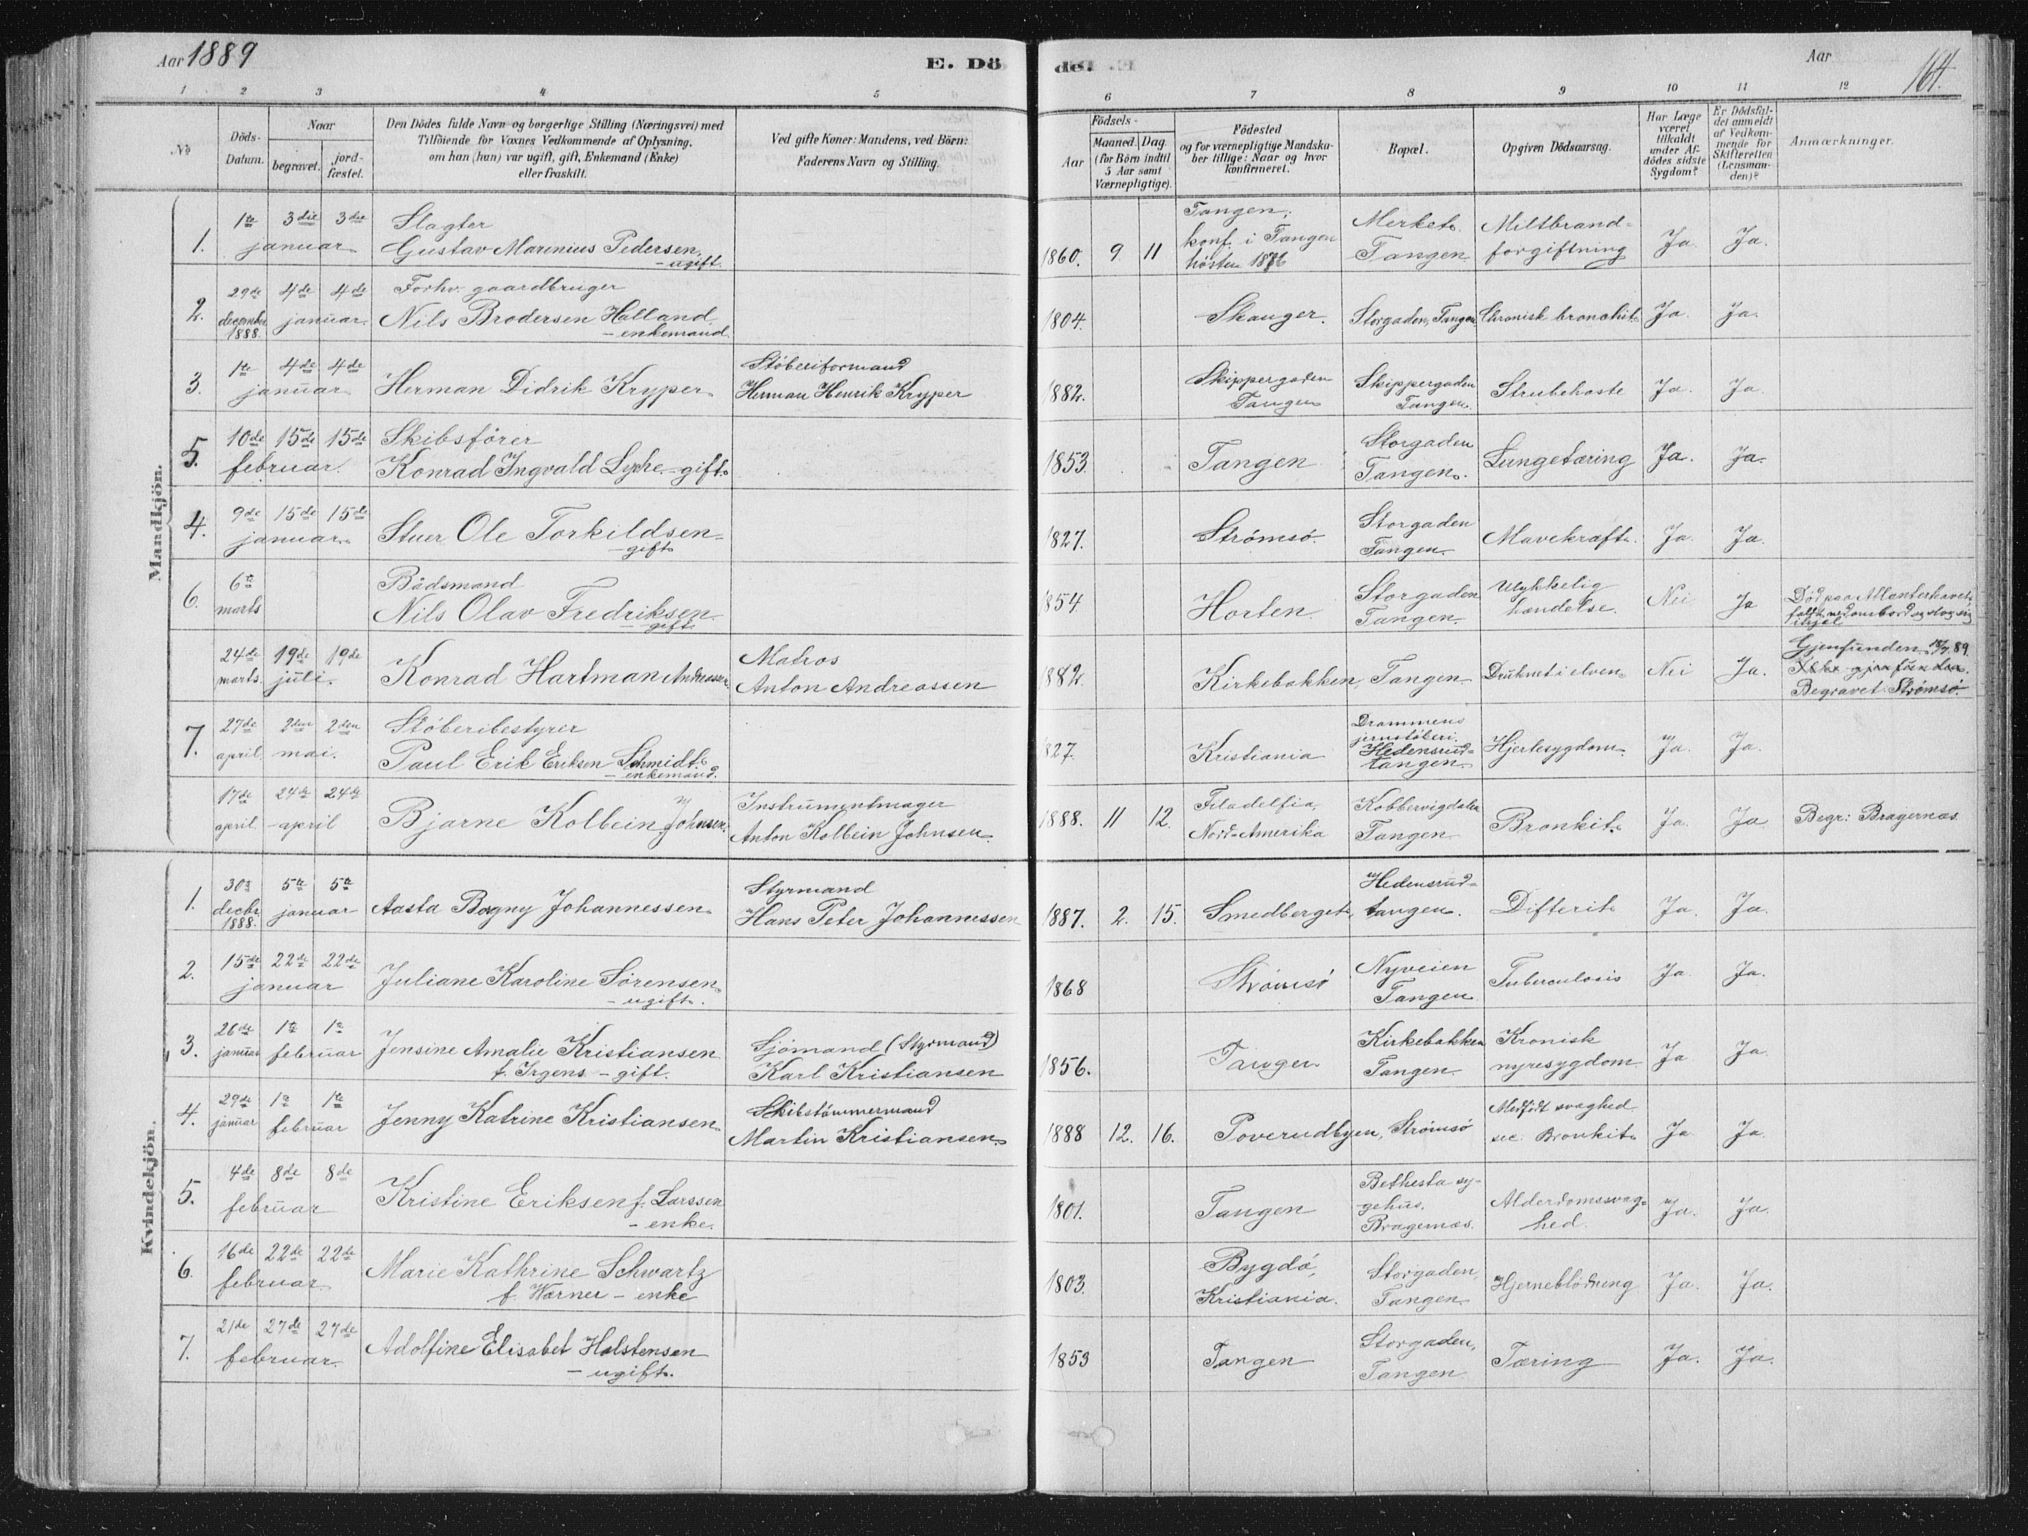 Aar 1889
E. Dö
de.
Aar
164.
1 2 3 4 5 6 7 8 9 10 11 12
No
Döds-Datum.
Naar
begravet.
jord-fæstet.
Den Dödes fulde Navn og borgerlige Stilling (Næringsvei) med
Tilföiende for Voxnes Vedkommende af Oplysning.
om han (hun) var ugift, gift, Enkemand (Enke)
eller fraskilt.
Ved gifte Koner: Mandens, ved Börn:
Faderens Navn og Stilling.
Födsels-
Aar
Maaned. Dag.
(for Börn indtil
5 Aar samt
Værnepligtige).
Födested
og for værnepligtige Mandska-
ber tillige: Naar og hvor
konfirmeret.
Bopæl.
Opgiven Dödsaarsag.
Har Læge
været
tilkaldt
under Af-
dödes sidste
Sygdom?
Er Dödsfal-
det anmeldt
af Vedkom-
mende for
Skifteretten
(Lensman-
den)?
Anmærkninger.
Mandkjön.
1. 1te 3die 3die Slagter Tangen, Merket. Miltbrand-
januar Gustav Marenius Pedersen. 1860. 9 11 konf. i Tangen Tangen forgiftning Ja Ja.
- ugift. høsten 1876
2. 29de 4de 4de Forhv. gaardbruger
december 1888. januar. Nils Brodersen Halland 1804. Skauger. Storgaden, Tangen. Chronisk bronchit. Ja. Ja.
- enkemand.
3. 1te 4de 4de Støberiformand Skippergaden Skippergaden
januar Herman Didrik Kryper. Herman Henrik Kryper 1882. Tangen Tangen. Strubehoste Ja. Ja
5. 10de 15de 15de Skibsfører Storgaden
februar. Konrad Ingvald Lyche - gift. 1853. Tangen Tangen. Lungetæring Ja. Ja.
4. 9de 15de 15de Storgaden
januar. Stuer Ole Torkildsen - 1827. Strømsø. Tangen. Mavekræft. Ja. Ja.
- gift.
6. 6te Bådsmand Storgaden Ulykkelig Død paa Atlanterhavet,
marts Nils Olav Fredriksen 1854. Horten Tangen. hændelse. Nei Ja faldt ned ombord og slog sig
- gift. ihjel.
24de 19de 19de Matros Gjenfunden /7 89.
marts. juli. Konrad Hartman Andreassen Anton Andreassen 1882. Kirkebakken, Tangen. Druknet i elven. Nei Ja.
Begravet Strømsø.
7. 27de 2den 2den Støberibestyrer Drammens
april mai. Paul Erik Eriksen Schmidt. 1827. Kristiania jernstøberi. Hjertesygdom. Ja. Ja.
- enkemand. Hedensrud-
tangen.
17de 24de 24de Instrumentmager Filadelfia, Kobbervigdalen
april april Bjarne Kolbein Johnsen. Anton Kolbein Johnsen. 1888. 11 12. Nord-Amerika Tangen Bronkit. Ja. Ja Begr: Bragernæs.
Kvindekjön.
1. 30te 5te 5te Styrmand Hedensrud-
decbr. 1888. januar Aasta Bogny Johannessen. Hans Peter Johannessen 1887. 2. 15. Smedberget, tangen. Difterit Ja. Ja.
2. 15de 22de 22de Nyveien
januar Juliane Karoline Sørensen. 1868 Strømsø Tangen Tuberculosis Ja. Ja.
- ugift.
3. 26de 1te 1te Sjömand (Styrmand) Kirkebakken Kronisk
januar februar Jensine Amalie Kristiansen Karl Kristiansen 1856. Tangen. Tangen. nyresygdom Ja Ja.
f. Irgens - gift.
4. 29de 1te 1te Skibstömmermand Medfødt svaghed
januar februar Jenny Katrine Kristiansen. Martin Kristiansen. 1888 12. 16. Poverudbyen, Strømsø sec. Bronkit. Ja. Ja.
5. 4de 8de 8de Bethesta sy- Alderdomssvag-
februar Kristine Eriksen f. Larssen 1801. Tangen gehus. hed. Ja. Ja.
- enke. Bragernæs.
6. 16de 22de 22de Bygdö, Storgaden,
februar Marie Kathrine Schwartz 1803. Kristiania. Tangen. Hjerneblödning Ja. Ja.
f. Warner - enke
7. 21de 27de 27de Storgaden,
februar. Adolfine Elisabet Holstensen 1853 Tangen Tangen. Tæring Ja. Ja.
- ugift.